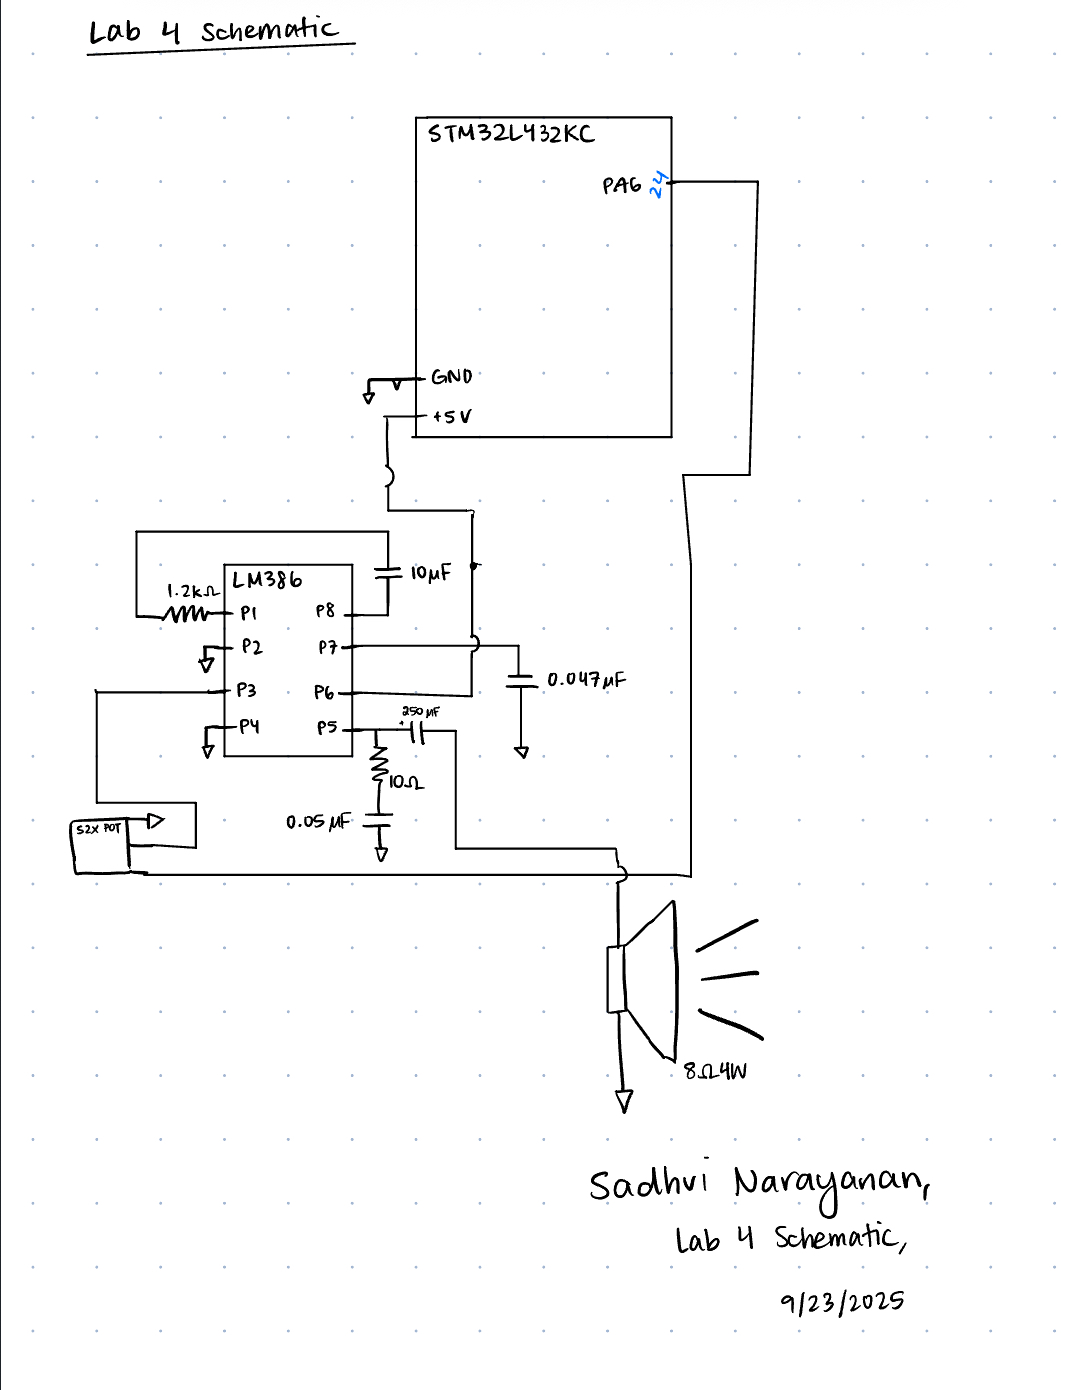 Lab 4 Schematic
STM32L432KC
PA6 24
GND
+5V
10µF
LM386
1.2kΩ
P1 P8
P2 P7
0.047µF
P3 P6
250 µF
+
P4 P5
10Ω
0.05 µF
52X POT
8Ω4W
Sadhvi Narayanan,
Lab 4 Schematic,
9/23/2025